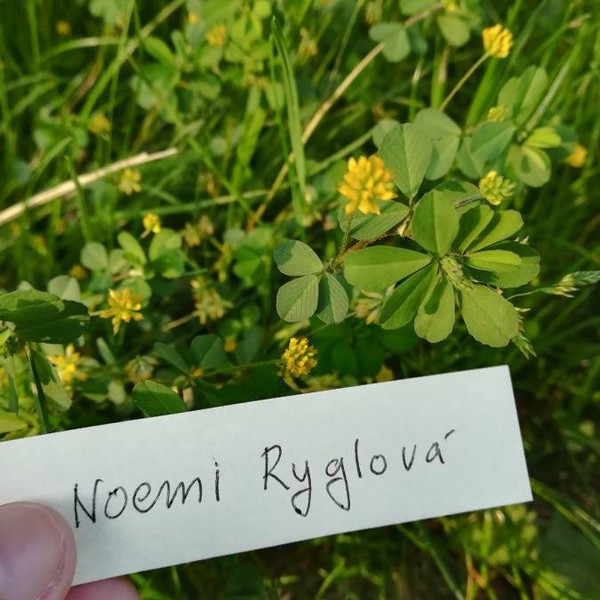 Noemi Ryglová